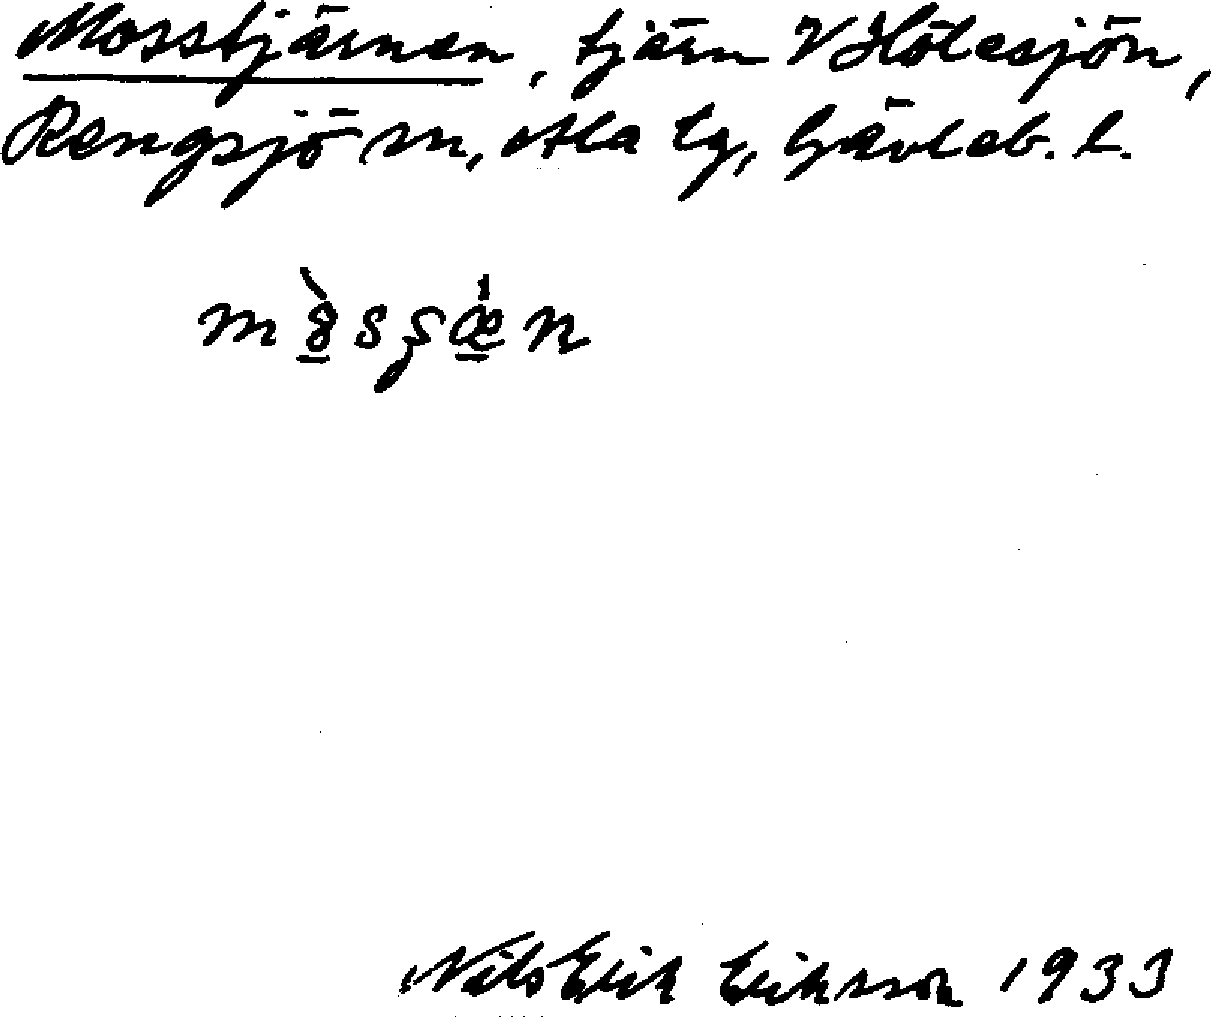 Mosstjärnen, tjärn V Hölesjön,
Rengsjö sn, Ala tg, Gävleb. l.
Nils Erik Eriksson 1933